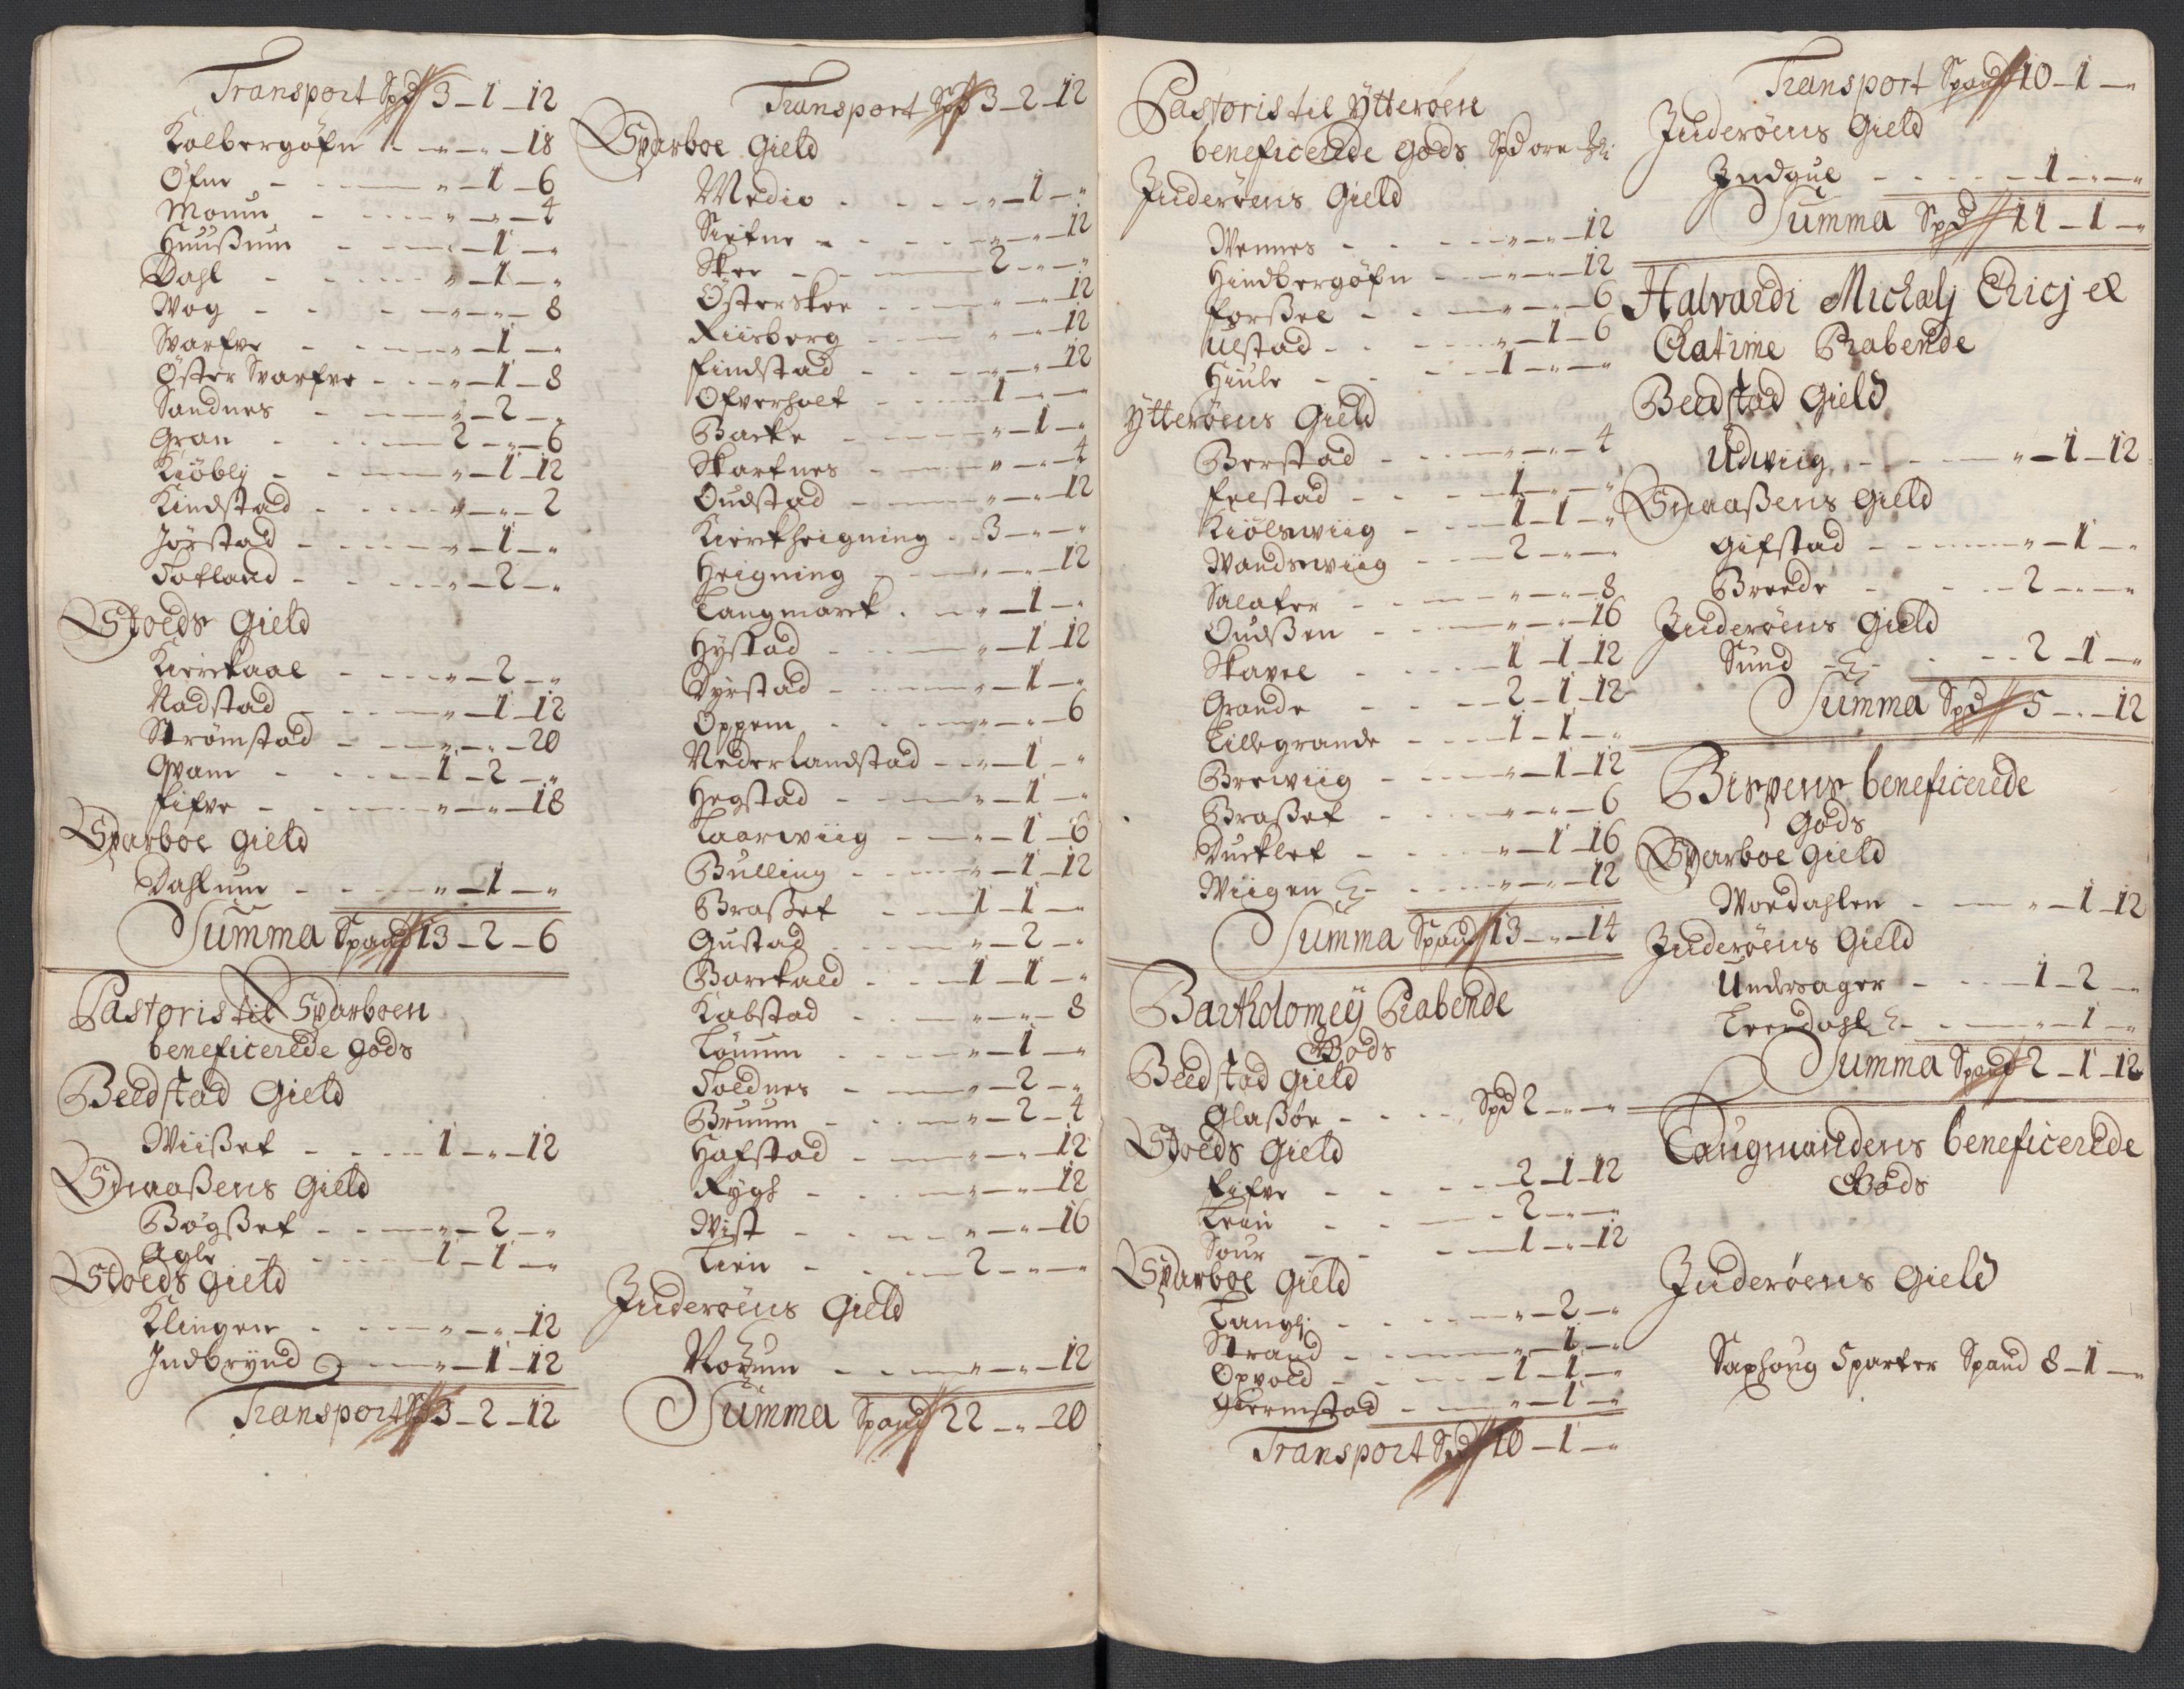 Transport Spd 3 - 1 - 12
Kolbergøfn - " - " - 18
Øfne - " - 1 - 6
Moum - " - " - 4
Huußum - " - 1 - "
Dahl - " - 1 - "
Wog - " - " - 8
Svarfve - " - 1 - "
Øster Svarfve - " - 1 - 8
Sandnes - " - 2 - "
Gran - 2 - " - 6
Kiøbly - " - 1 - 12
Kindstad - " - " - 2
Jørstad - " - 1 - "
Tofland - " - 2 - "
Stoeds Gield
Kierkaal - " - 2 - "
Nadstad - " - 1 - 12
Strømstad - " - " - 20
Qvam - 1 - 2 - "
Fifve - " - " - 18
Sparboe Gield
Dahlum - " - 1 - "
Summa Spand 13 - 2 - 6
Pastoris til Sparboen
beneficerede gods
Beedstad Gield
Wiißet - 1 - " - 12
Snaaßens Gield
Bøgßet - " - 2 - "
Agle - 1 - 1 - "
Stoeds Gield
Klingen - " - " - 12
Indbrynd - " - 1 - 12
Transport Spd 3 - 2 - 12
Transport Spd 3 - 2 - 12
Sparboe Gield
Medio - " - 1 - "
Sirfne - " - " - 12
Sker - 2 - " - "
Østerskee - " - " - 12
Riisberg - " - " - 12
Findstad - " - " - 12
Ofverholt - 1 - " - "
Barke - " - 1 - "
Skarfnes - " - " - 4
Oudstad - " - " - 12
Kierkheigning - 3 - " - "
Heigning - " - " - 12
Langmarck - " - 1 - "
Hystad - " - 1 - 12
Dyrstad - " - 1 - "
Oppem - " - " - 6
Nederlandstad - " - 1 - "
Hegstad - " - 1 - "
Laarwiig - " - 1 - 6
Bulling - " - 1 - 12
Braßet - 1 - 1 - "
Gustad - " - 2 - "
Borckald - 1 - 1 - "
Kabstad - " - " - 8
Louum - " - 1 - "
Toldnes - " - 2 - "
Bruum - " - 2 - 4
Hafstad - " - " - 12
Rygh - " - " - 12
Wist - " - " - 16
Lein - 2 - " - "
Inderøens Gield
Rozum - " - " - 12
Summa Spand 22 - " - 20
Pastoris til Ytterøen
beneficerede gods Spd ore
Inderøens Gield
Wennes - " - " - 12
Hindbergøfn - " - " - 12
Forßee - " - " - 6
Uestad - " - 1 - 6
Hiule - 1 - " - "
Ytterøens Gield
Berstad - " - " - 4
Feestad - 1 - " - "
Kiølswiig - 1 - 1 - "
Wandswiig - 2 - " - "
Salater - " - " - 8
Oudßen - " - " - 16
Skavee - 1 - 1 - 12
Grande - 2 - 1 - 12
Lillegrande - 1 - 1 - "
Brewiig - " - 1 - 12
Braßet - " - " - 6
Durklet - " - 1 - 16
Wiigen - " - " - 12
Summa Spand 13 - " - 14
Bartholomey Prabende
Gods
Beedstad Gield
Glaßøe - Spd 2 - " - "
Stoeds Gield
Fifve - 2 - 1 - 12
Lein - 2 - " - "
Sour - 1 - " - 12
Sparboe Gield
Langlj - " - 2 - "
Strand - " - 1 - "
Opvold - 1 - 1 - "
Giermstad - " - 1 - "
Transport Spd 10 - 1 - "
Transport Spand 10 - 1 - "
Inderøens Gield
Indgul - 1 - " - "
Summa Spd 11 - 1 - "
Halvardi Michalj Ericj et
Chatime Prabende
Beedstad Gield
Udwiig - " - 1 - 12
Snaaßens Gield
Gifstad - " - 1 - "
Breede - 2 - " - "
Inderøens Gield
Sund - 2 - 1 - "
Summa Spd 5 - " - 12
Bispens beneficerede
Gods
Sparboe Gield
Wordahlen - " - 1 - 12
Inderøens Gield
Undersager - 1 - 2 - "
Leerdahl - " - 1 - "
Summa Spand 2 - 1 - 12
Laugmandens beneficerede
Gods
Inderøens Gield
Saxhoug Sparter Spand 8 - 1 - "